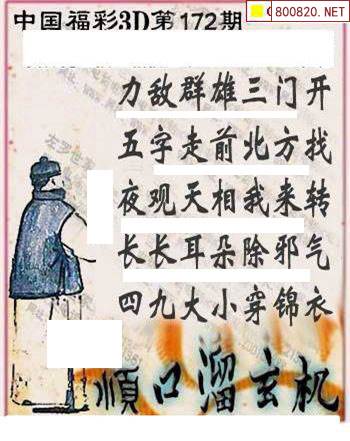 中国福彩3D第172期
800820.NET
力敌群雄三门开
五字走前北方找
夜观天相我来转
长长耳朵除邪气
四九大小穿锦衣
顺口溜玄机